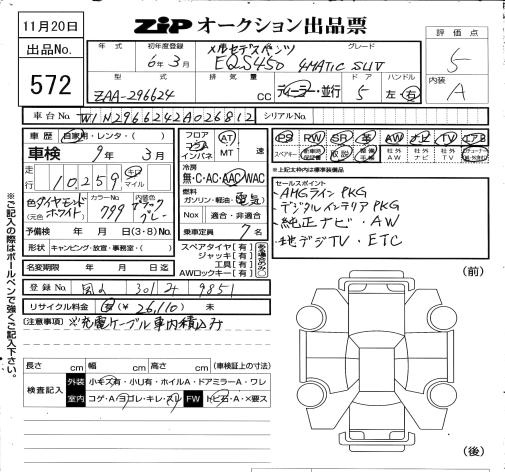 11月20日
ZIP オークション出品票
出品No.
572
年式 初年度登録 グレード
6年3月 メルセデスベンツ EQS450 4MATIC SUV
型式 排気量 ドア ハンドル
ZAA-296624 CC ディーラー・並行 5 左・右
評価点
5
内装
A
車台No. W1N2966242A026812 シリアルNo.
車歴 自家用・レンタ・( )
車検 9年 3月
走行 10,259 キロ マイル
色(元色) ダイヤモンドホワイト カラーNo. 799 内装色 ブラックグレー
予備検 年 月 日(3・8)No.
形状 キャンピング・放宣・事務室・( )
名変期限 年 月 日迄
フロア コラム インパネ AT MT 速
冷房 無・C・AC・AAC・WAC
燃料 ガソリン・軽油・電気
Nox 適合・非適合
乗車定員 7名
スペアタイヤ[有]
ジャッキ[有]
工具[有]
AWロックキー[有]
ある場合のみ○
PS PW SR 革 AW ナビ TV エアB
スペアキー 新車時保証書 取説 整備手帳 社外AW 社外ナビ 社外TV
★上記太枠内は標準装備品
セールスポイント
・AMGライン PKG
・デジタルインテリア PKG
・純正ナビ・AW
・地デジTV・ETC
登録No. 301 9851
リサイクル料金 (¥26,110) 未
(注意事項) ※充電ケーブル車内積込み
長さ cm 幅 cm 高さ cm (車検証上の寸法)
検査記入
外装 小キズ有・小U有・ホイルA・ドアミラーA・ワレ
室内 コゲ・A・ヨゴレ・キレ・スリ FW トビ石・A・X要ス
(前)
(後)
※ご記入の際はボールペンで強くご記入下さい。